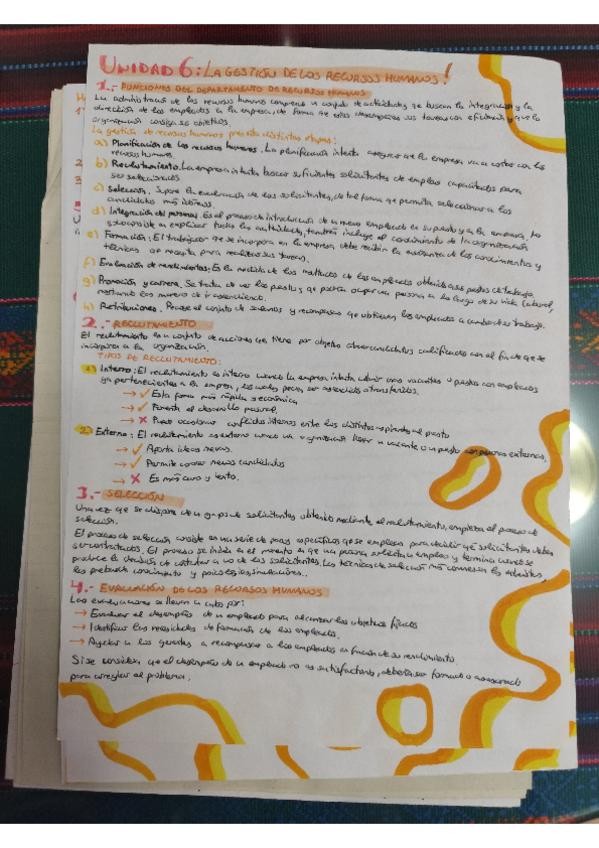 UNIDAD 6: LA GESTIÓN DE LOS RECURSOS HUMANOS!
1.- FUNCIONES DEL DEPARTAMENTO DE RECURSOS HUMANOS
La administración de los recursos humanos comprende un conjunto de actividades que buscan la integración y la
dirección de los empleados en la empresa, de forma que estos desempeñen sus tareas con eficiencia y que la
organización consiga sus objetivos.
La gestión de recursos humanos presenta distintas etapas:
a) Planificación de los recursos humanos. La planificación intenta asegurar que la empresa va a contar con los
recursos humanos
b) Reclutamiento. La empresa intenta buscar suficientes solicitantes de empleo capacitados para
ser seleccionados
c) Selección. Supone la evaluación de los solicitantes, de tal forma que permita seleccionar a los
candidatos más idóneos.
d) Integración del personal. Es el proceso de introducción de un nuevo empleado en su puesto y en la empresa, no
solo consiste en explicar todas las actividades, también incluye el conocimiento de la organización
e) Formación: El trabajador que se incorpora en la empresa debe recibir la enseñanza de los conocimientos y
técnicas que necesita para realizar sus tareas.
f) Evaluación de rendimientos: Es la medida de los resultados de los empleados obtenidos en sus puestos de trabajo
g) Promoción y carrera. Se trata de ver los puestos que podrían ocupar una persona a lo largo de su vida laboral,
mostrando las maneras de ir ascendiendo.
h) Retribuciones. Recoge el conjunto de sueldos y recompensas que obtienen los empleados a cambio de su trabajo.
2.- RECLUTAMIENTO
El reclutamiento es un conjunto de acciones que tiene por objetivo atraer candidatos cualificados con el fin de que se
incorporen a la organización.
TIPOS DE RECLUTAMIENTO:
1) Interno: El reclutamiento es interno cuando la empresa intenta cubrir sus vacantes o puestos con empleados
ya pertenecientes a la empresa, los cuales pueden ser ascendidos o transferidos.
→ ✓ Es la forma más rápida y económica
→ ✓ Fomenta el desarrollo personal.
→ ✗ Puede ocasionar conflictos internos entre los distintos aspirantes al puesto
2) Externo: El reclutamiento es externo cuando una organización llena una vacante o un puesto con personas externas,
→ ✓ Aporta ideas nuevas.
→ ✓ Permite conocer nuevos candidatos
→ ✗ Es más caro y lento.
3.- SELECCIÓN
Una vez que se dispone de un grupo de solicitantes obtenido mediante el reclutamiento, empieza el proceso de
selección.
El proceso de selección consiste en una serie de pasos específicos que se emplean para decidir qué solicitantes deben
ser contratados. El proceso se inicia en el momento en que una persona solicita un empleo y termina cuando se
produce la decisión de contratar a uno de los solicitantes. Las técnicas de selección más comunes son las entrevistas,
las pruebas de conocimiento y psicológicas, simulaciones...
4.- EVALUACIÓN DE LOS RECURSOS HUMANOS
Las evaluaciones se llevan a cabo por:
→ Evaluar el desempeño de un empleado para alcanzar los objetivos fijados
→ Identificar las necesidades de formación de los empleados.
→ Ayudar a los gerentes a recompensar a los empleados en función de su rendimiento
Si se considera que el desempeño de un empleado no es satisfactorio, deberá ser formado o asesorado
para corregir el problema.